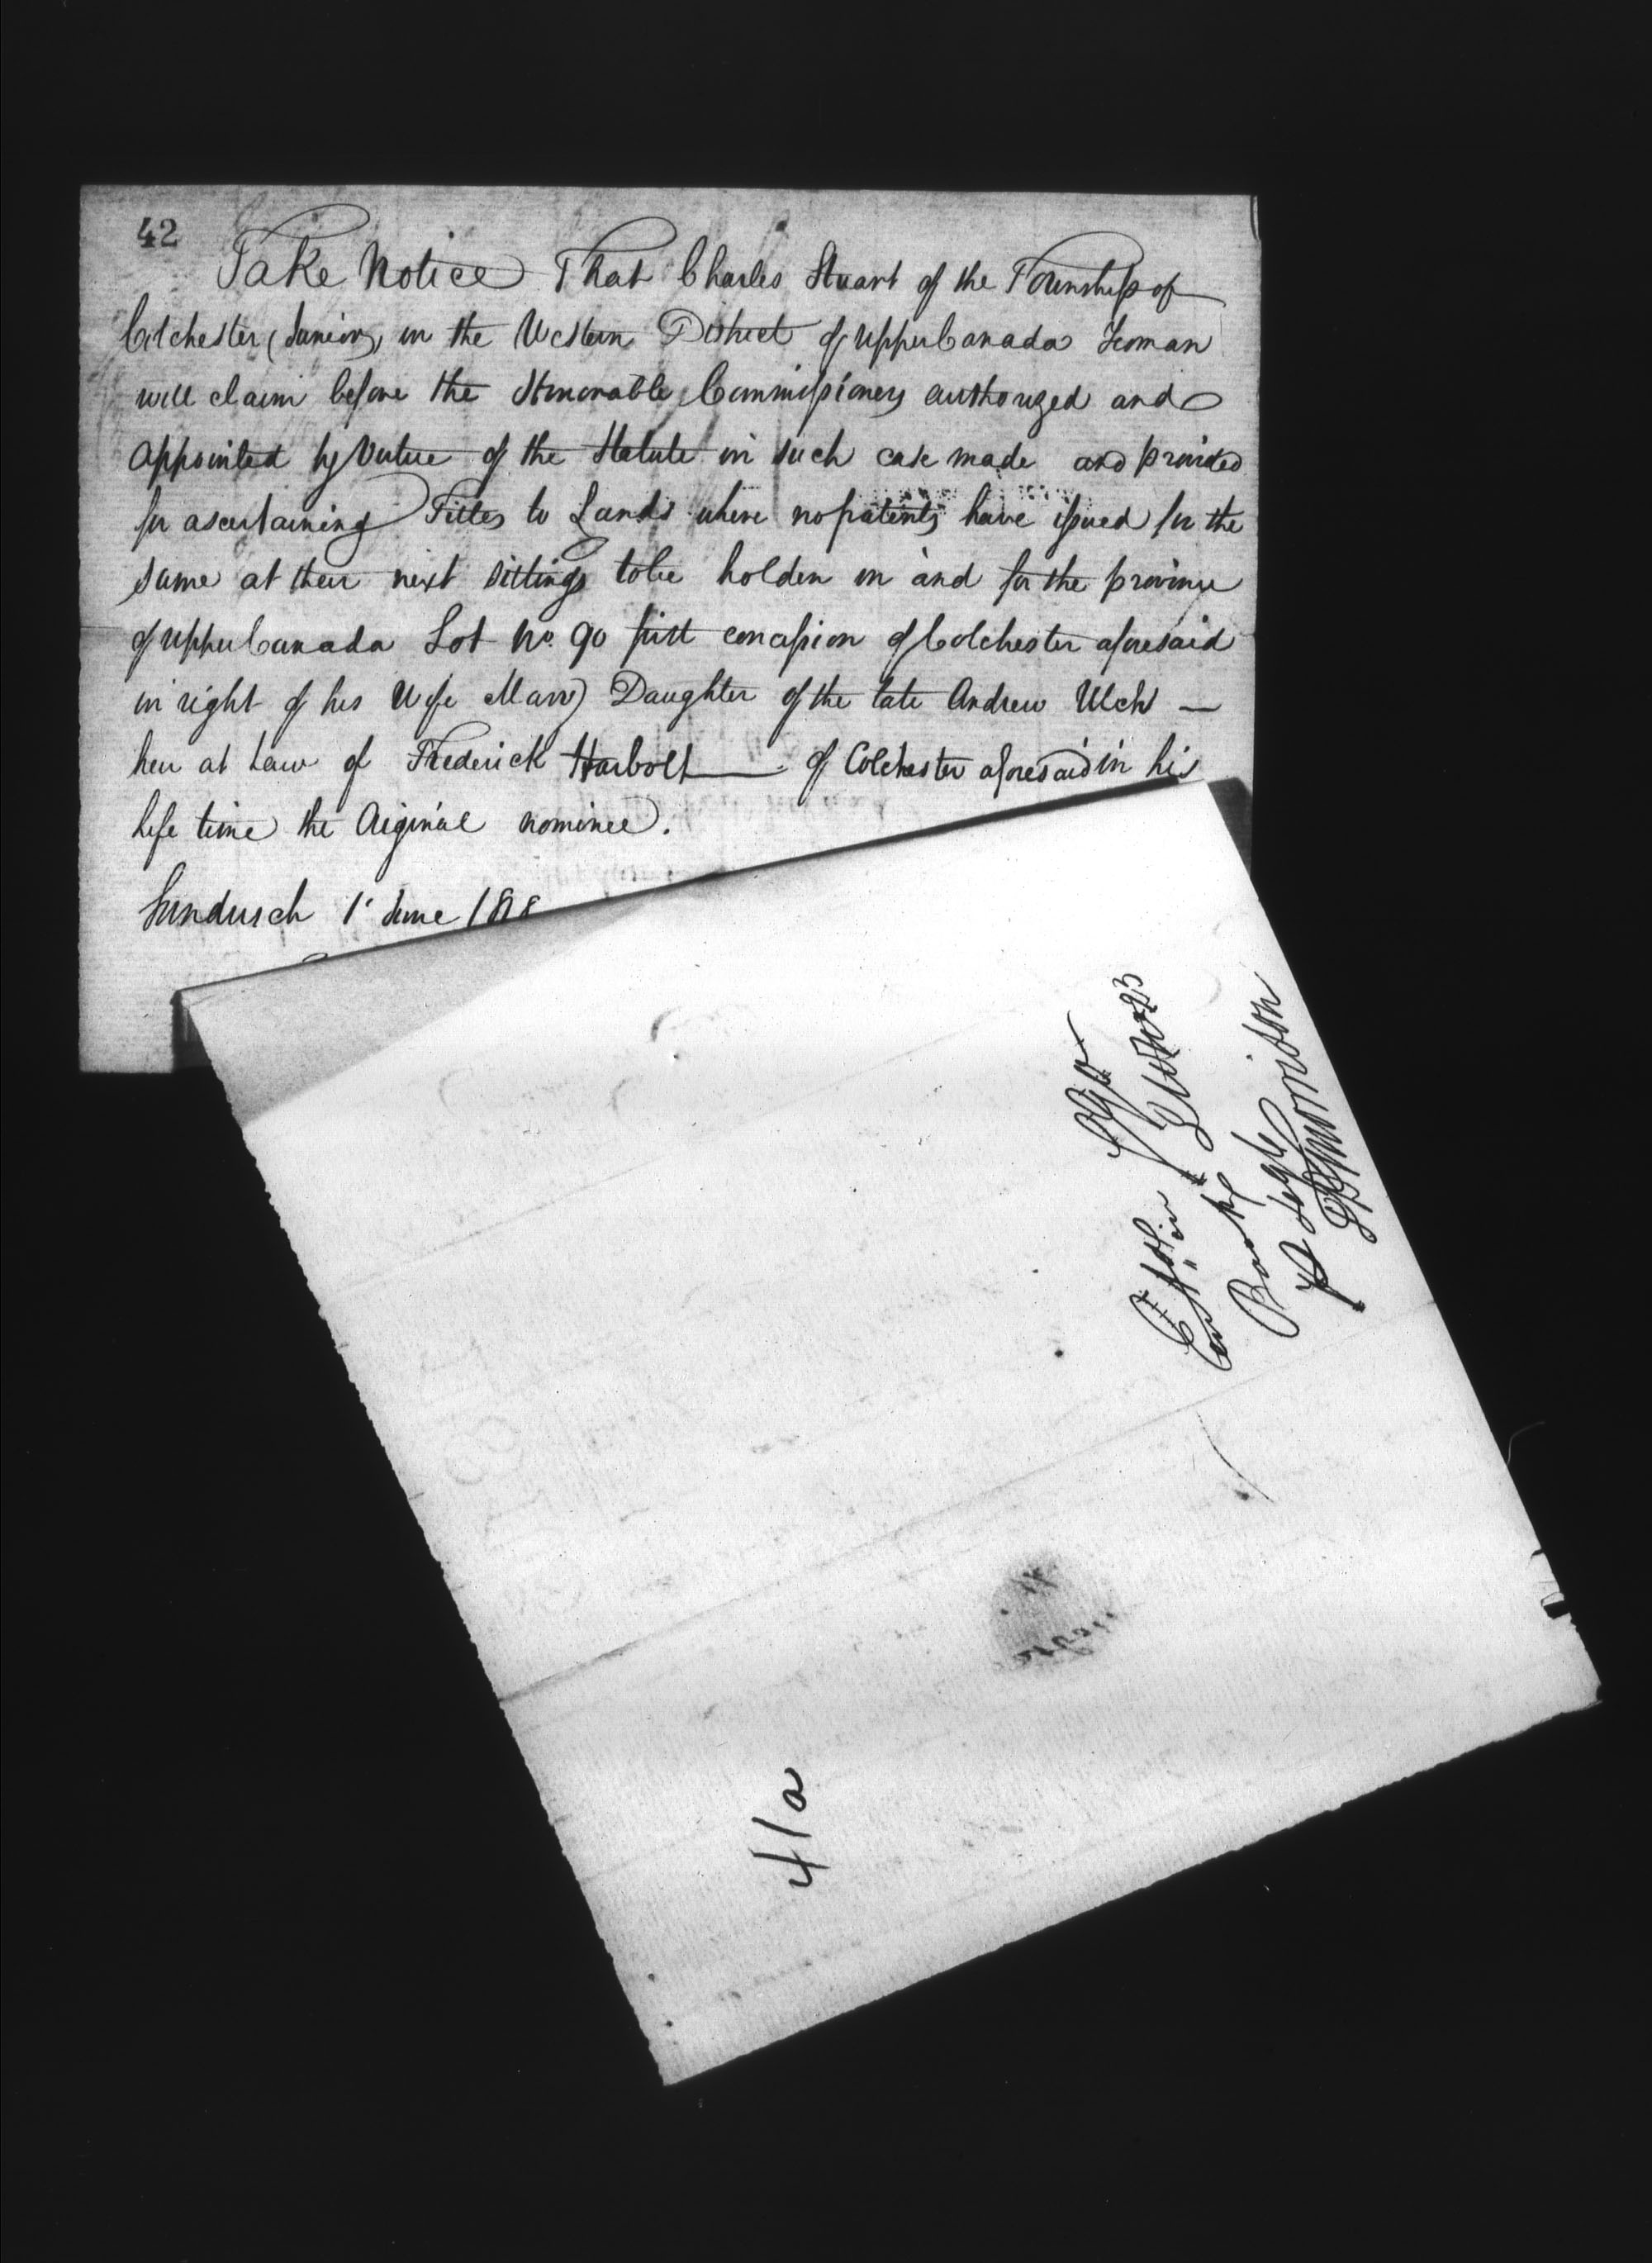 42
Take Notice That Charles Stuart of the Township of
Colchester (Junior) in the Western District of Upper Canada Yeoman
will claim before the Honorable Commissioners authorized and
appointed by Virtue of the Statute in such case made and provided
for ascertaining Titles to Lands where no patents have issued for the
same at their next sittings to be holden in and for the province
of Upper Canada Lot No. 90 first concession of Colchester aforesaid
in right of his Wife Mary Daughter of the late Andrew Ulch —
heir at Law of Frederick Harbolt — of Colchester aforesaid in his
life time the Original nominee.
Sandwich 1st June 18
41a